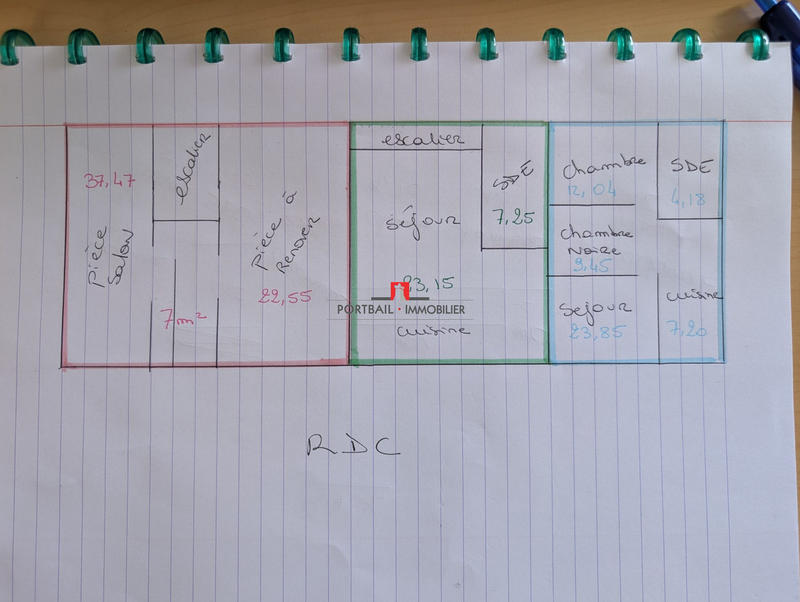 37,47
pièce
salon
escalier
7m²
pièce à
Renover
22,55
escalier
SDE
7,25
séjour
23,15
cuisine
PORTBAIL · IMMOBILIER
chambre
12,04
SDE
4,18
chambre
Noire
9,45
sejour
23,85
cuisine
7,20
RDC